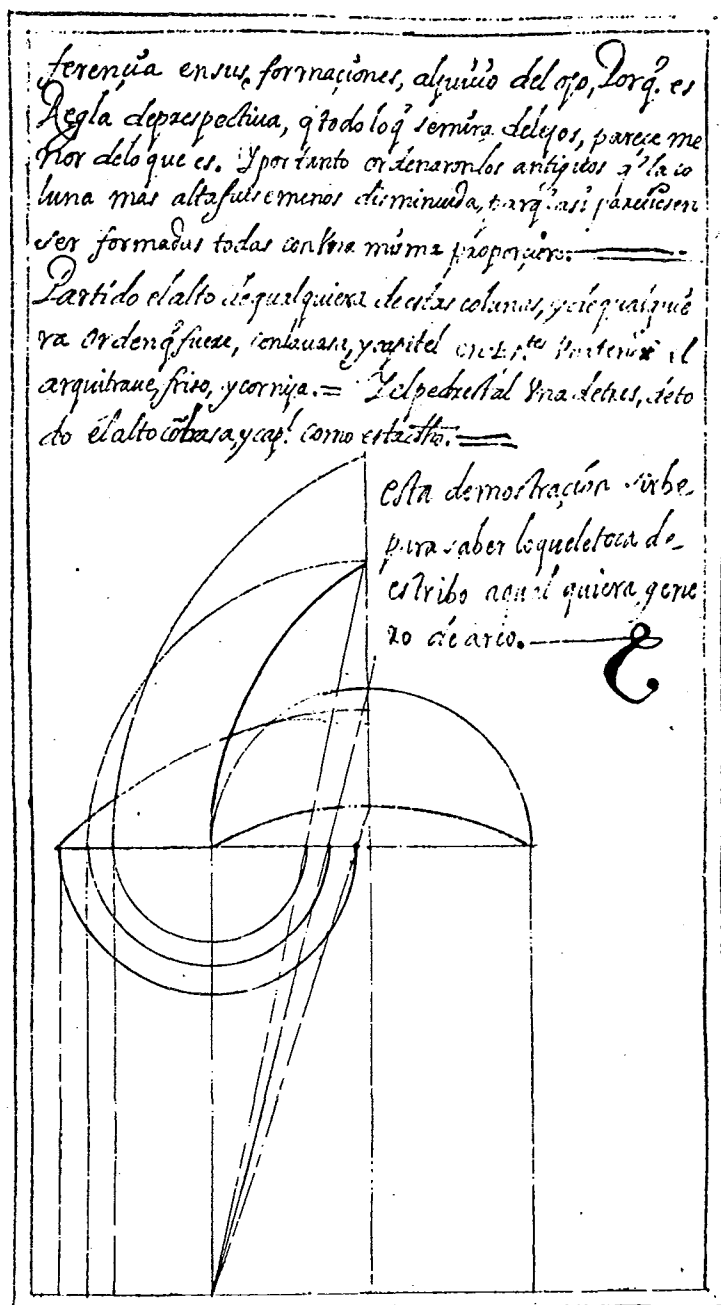 ferençia en sus formaçiones, al juiçio del ojo, Porq̃. es
Regla de prespectiua, q̃ todo loq̃ semira delejos, pareçe me
nor delo que es. Y por tanto ordenaron los antiguos q̃ la co
luna mas alta fuese menos disminuida, parq̃. asi pareçiesen
ser formadas todas con vna misma proporçion.
Partido el alto de qualquiera de estas colunas, y de qualquie
ra orden q̃ fuere, con la uasa, y capitel en tes. tendra el
arquitraue, friso, y cornija. = Y el pedrestal Vna de tres, de to
do el alto cõ basa, y cap.l como esta dho.
esta demostraçion sirbe
para saber loque le toca de
estribo a qual quiera gene
ro de arco.